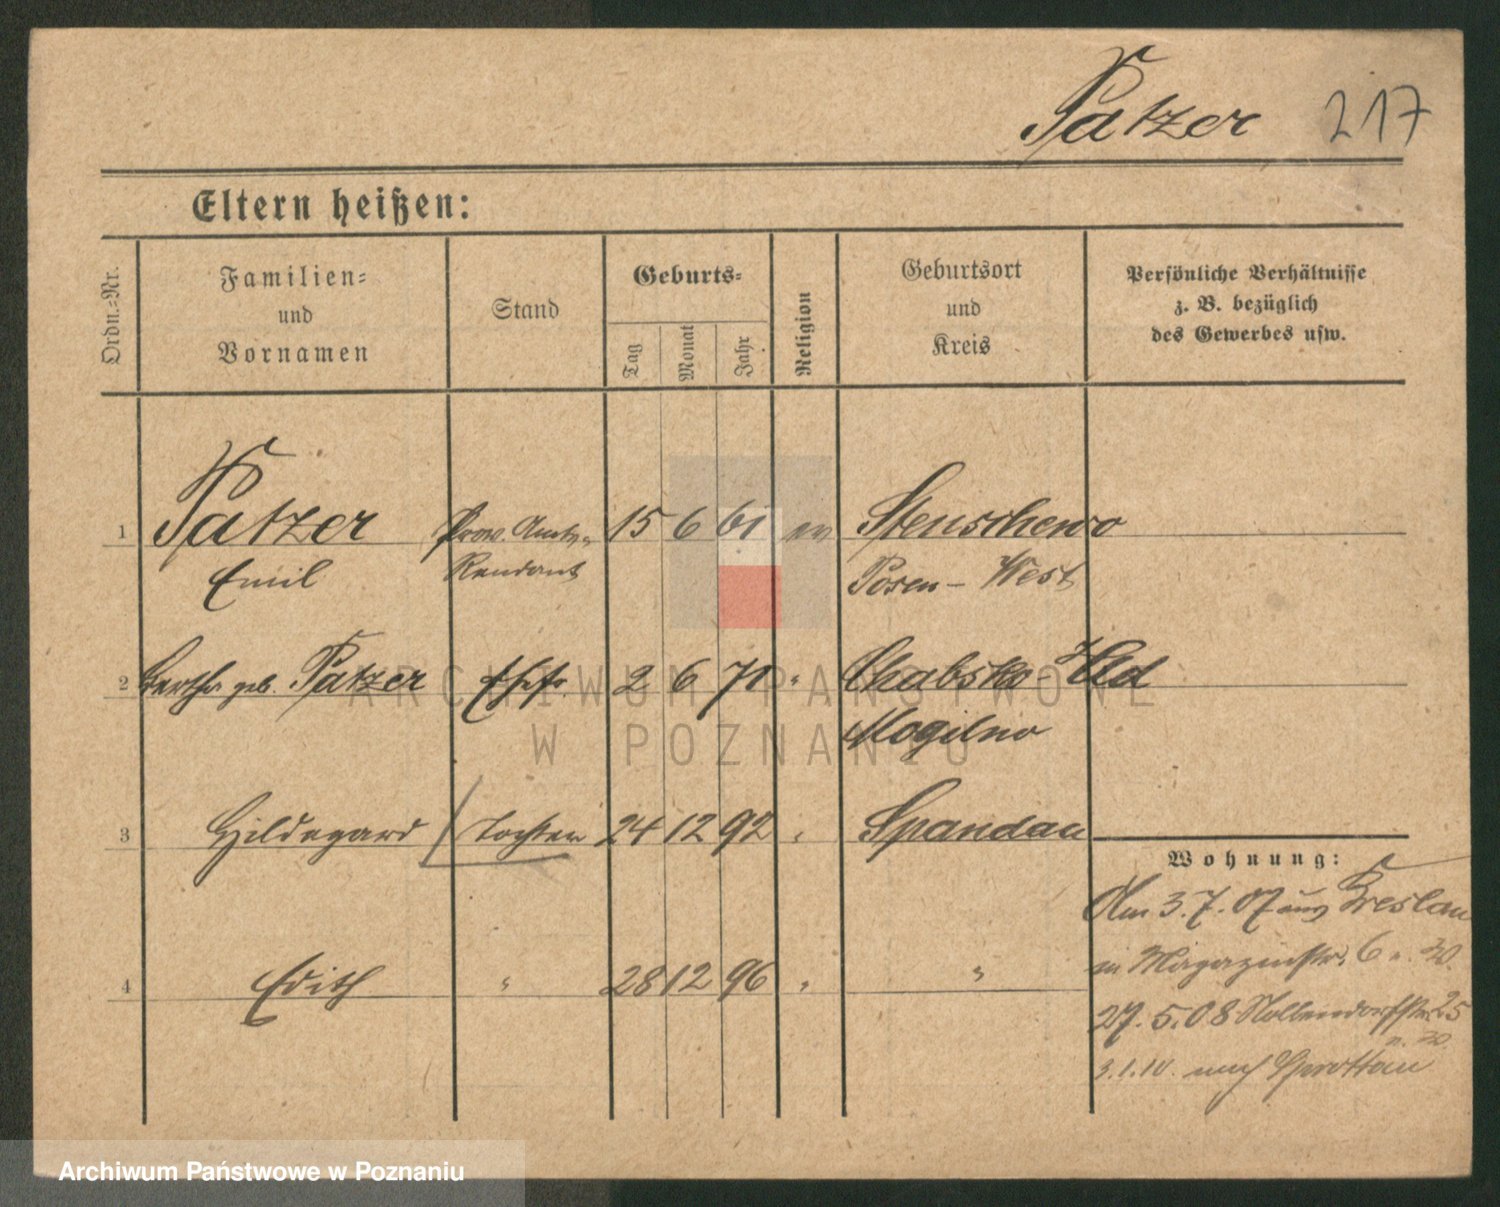 Patzer 217
Eltern heißen:
Ordn.-Nr.
Familien-
und
Vornamen
Stand
Geburts-
Tag
Monat
Jahr
Religion
Geburtsort
und
Kreis
Persönliche Verhältnisse
z. B. bezüglich
des Gewerbes usw.
1 Patzer Prov. Amts- 15 6 61 ev Stenschewo
Emil Rendant Posen-West
2 Bertha geb. Patzer Ehefr. 2 6 71 " Chabsko-Hld
Mogilno
3 Hildegard Tochter 24 12 92 " Spandau
Wohnung:
Am 3.7.07 aus Breslau
in Magazinstr. 6
4 Edith " 28 12 96 " "
27.5.08 Nollendorfstr. 25
3.1.10. nach Sprottau
ARCHIWUM PAŃSTWOWE
W POZNANIU
Archiwum Państwowe w Poznaniu